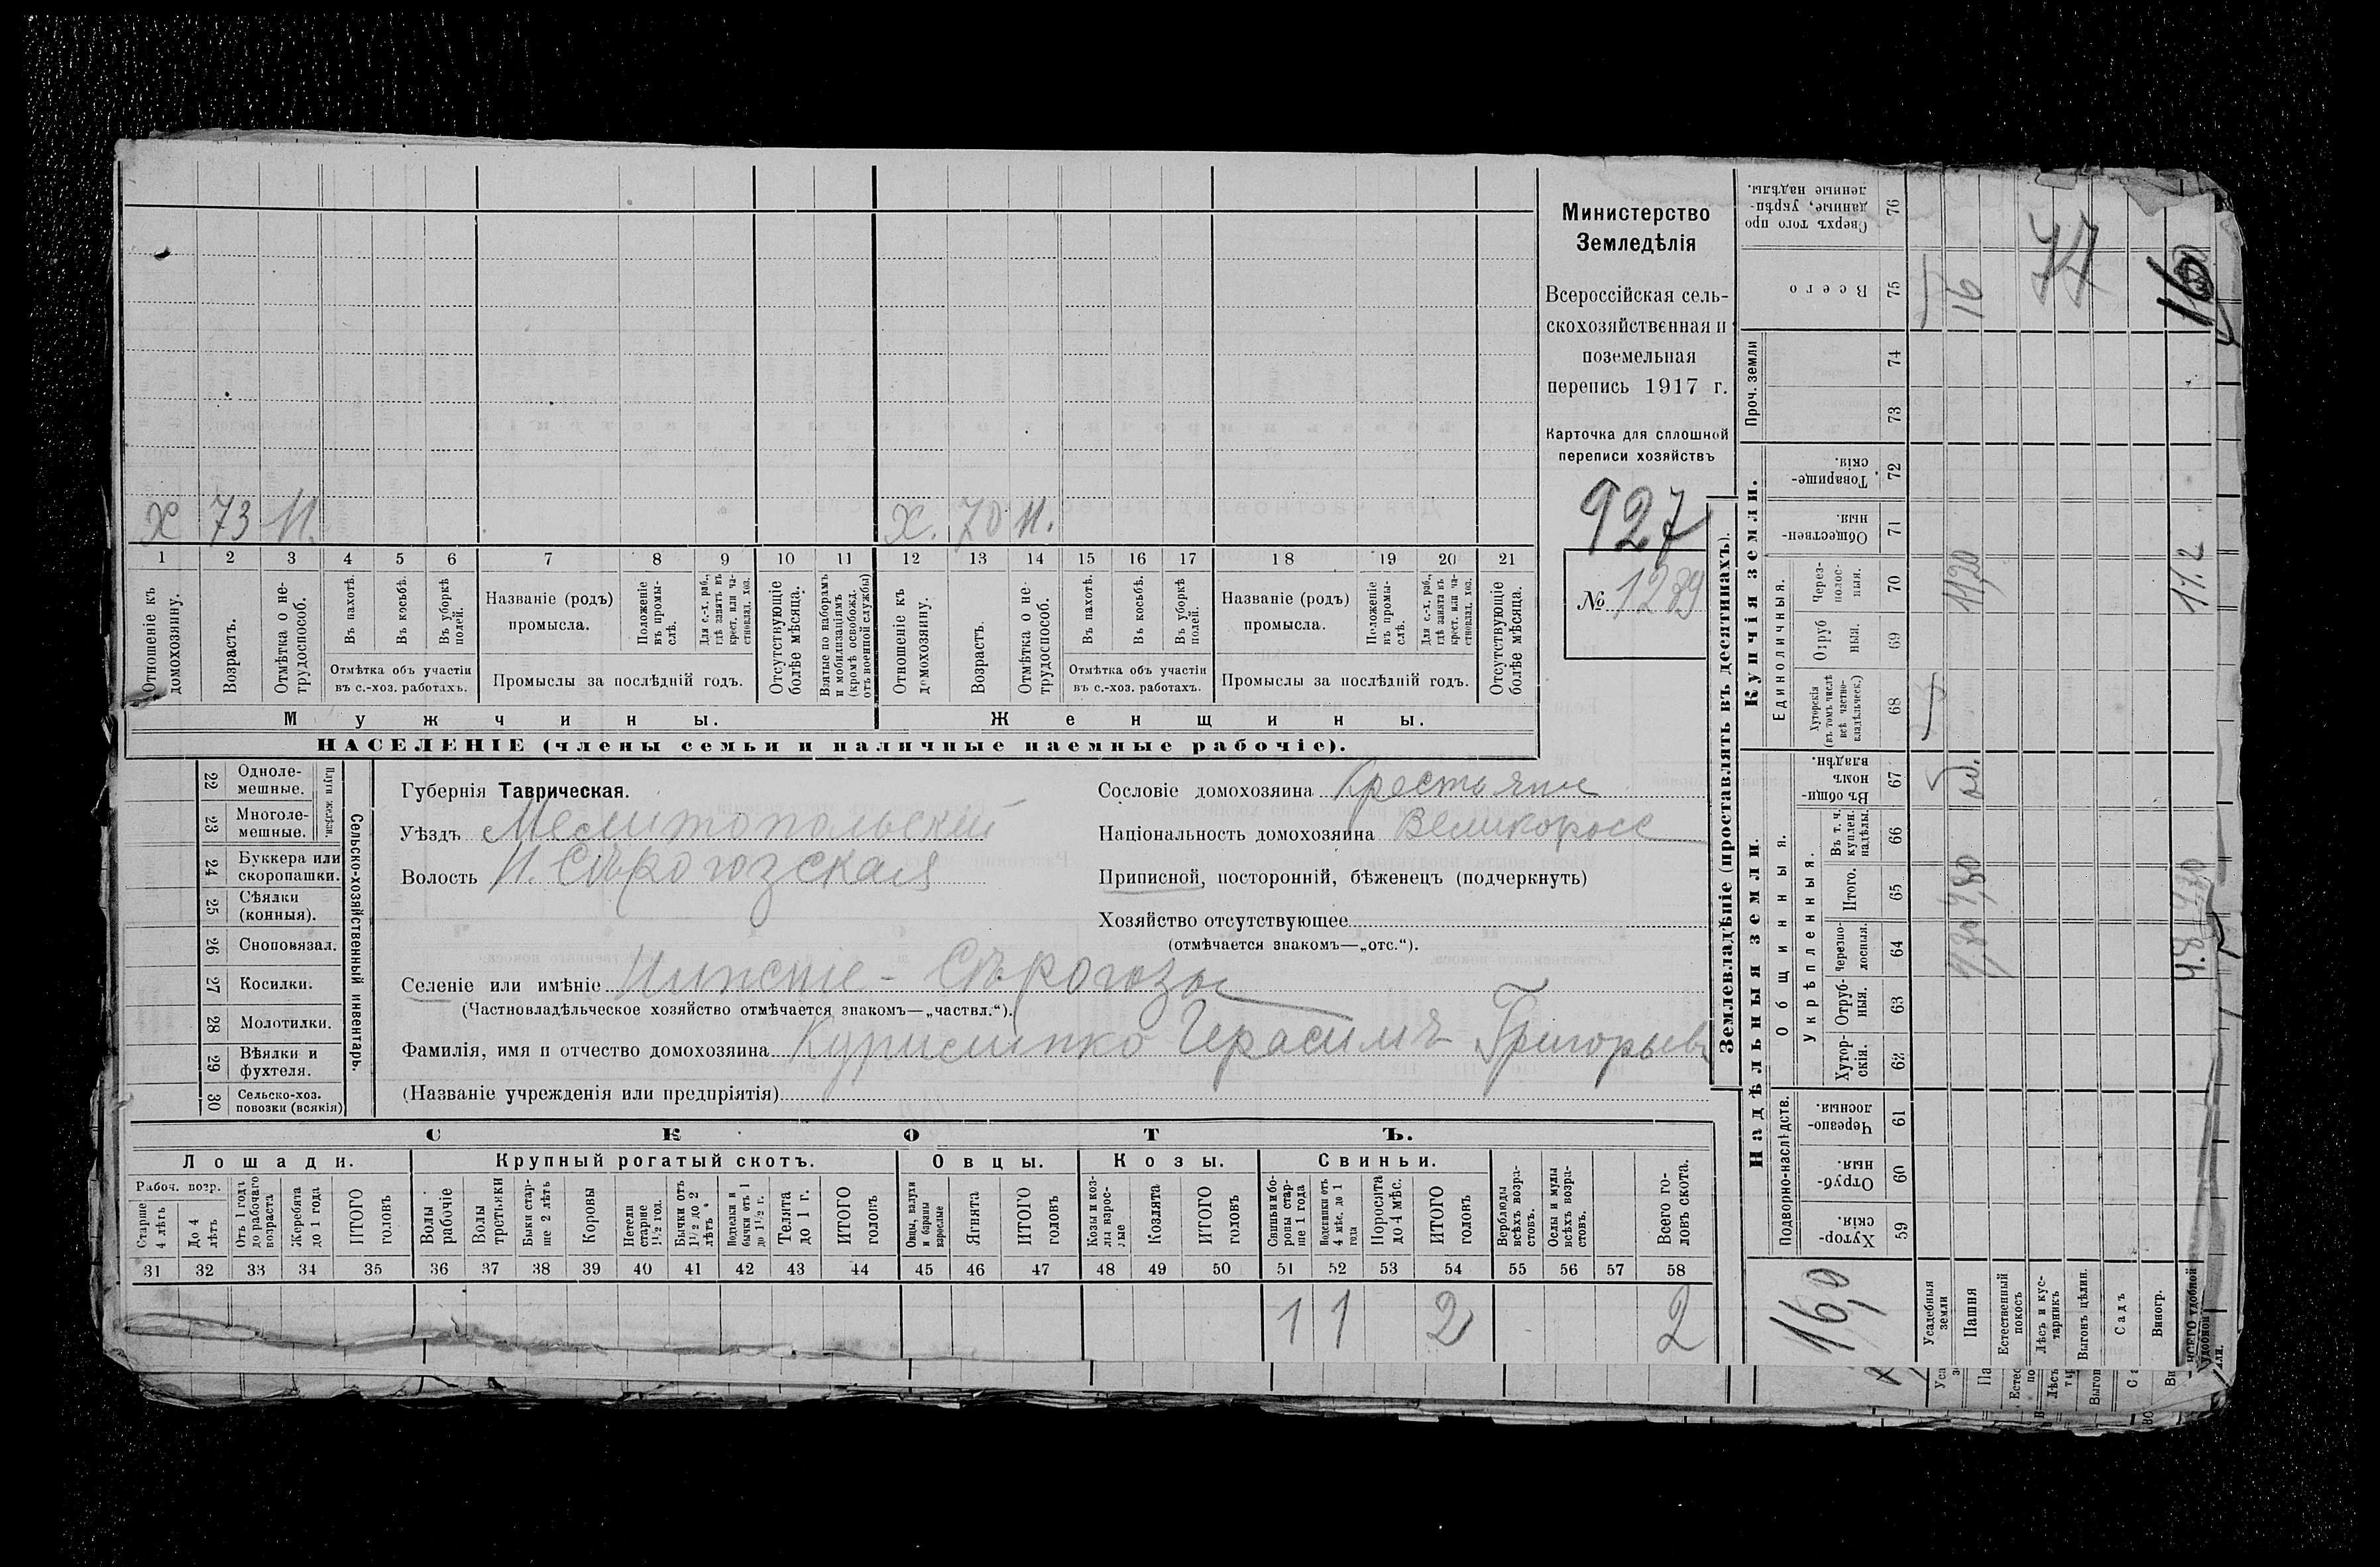 Министерство
Земледѣлія
Всероссійская сель-
скохозяйственная и
поземельная
перепись 1917 г.
Карточка для сплошной
переписи хозяйствъ
927
№ 1239
X 73 Н. X. 70 Н.
1 2 3 4 5 6 7 8 9 10 11 12 13 14 15 16 17 18 19 20 21
Отношеніе къ домохозяину.
Возрастъ.
Отмѣтка о не-трудоспособ.
Въ пахотѣ.
Въ косьбѣ.
Въ уборкѣ полей.
Отмѣтка объ участіи
въ с.-хоз. работахъ.
Названіе (родъ)
промысла.
Положеніе въ промы-слѣ.
Для с.-х. раб., гдѣ занятъ въ крест. или ча-стновлад. хоз.
Промыслы за послѣдній годъ.
Отсутствующіе болѣе мѣсяца.
Взятые по наборамъ и мобилизаціямъ (кромѣ освобожд. отъ военной службы)
Отношеніе къ домохозяину.
Возрастъ.
Отмѣтка о не-трудоспособ.
Въ пахотѣ.
Въ косьбѣ.
Въ уборкѣ полей.
Отмѣтка объ участіи
въ с.-хоз. работахъ.
Названіе (родъ)
промысла.
Положеніе въ промы-слѣ.
Для с.-х. раб., гдѣ занята въ крест. или ча-стновлад. хоз.
Промыслы за послѣдній годъ.
Отсутствующіе болѣе мѣсяца.
Мужчины. Женщины.
НАСЕЛЕНІЕ (члены семьи и наличные наемные рабочіе).
22 Одноле-мешные.
23 Многоле-мешные.
Плуги желѣзн.
24 Буккера или скоропашки.
25 Сѣялки (конныя).
26 Сноповязал.
27 Косилки.
28 Молотилки.
29 Вѣялки и фухтеля.
30 Сельско-хоз. повозки (всякія)
Сельско-хозяйственный инвентарь.
Губернія Таврическая.
Уѣздъ Мелитопольскій
Волость Н. Сѣрогозская
Сословіе домохозяина Крестьянин
Національность домохозяина Великоросс
Приписной, посторонній, бѣженецъ (подчеркнуть)
Хозяйство отсутствующее
(отмѣчается знакомъ—„отс.“).
Селеніе или имѣніе Нижніе - Сѣрогозы
(Частновладѣльческое хозяйство отмѣчается знакомъ—„частвл.“).
Фамилія, имя и отчество домохозяина Герасимъ Григорьев
(Названіе учрежденія или предпріятія)
СКОТЪ.
Лошади. Крупный рогатый скотъ. Овцы. Козы. Свиньи.
Рабоч. возр.
Старше 4 лѣтъ
До 4 лѣтъ
Отъ 1 года до рабочаго возраста
Жеребята до 1 года
ИТОГО головъ
Волы рабочіе
Волы третьяки
Быки стар-ше 2 лѣтъ
Коровы
Нетели старше 1½ год.
Бычки отъ 1½ до 2 лѣтъ
Подтелки и бычки отъ 1 до 1½ г.
Телята до 1 г.
ИТОГО головъ
Овцы, валухи и бараны взрослые
Ягнята
ИТОГО головъ
Козы и коз-лы взрос-лые
Козлята
ИТОГО головъ
Свиньи и бо-ровы стар-ше 1 года
Подсвинки отъ 4 мѣс. до 1 года
Поросята до 4 мѣс.
ИТОГО головъ
Верблюды всѣхъ возра-стовъ.
Ослы и мулы всѣхъ возра-стовъ.
Всего го-ловъ скота.
31 32 33 34 35 36 37 38 39 40 41 42 43 44 45 46 47 48 49 50 51 52 53 54 55 56 57 58
1 1 2 2
Землевладѣніе (проставлять въ десятинахъ).
Надѣльныя земли. Купчія земли.
Подворно-наслѣдств.
Общинныя.
Укрѣпленныя.
Единоличныя.
Проч. земли
Хутор-скія. 59
Отруб-ныя. 60
Черезпо-лосныя. 61
Хутор-скія. 62
Отруб-ныя. 63
Черезпо-лосныя. 64
Итого. 65
Въ т. ч. куплен. надѣлы. 66
Въ общи-номъ владѣн. 67
Хуторскія (въ томъ числѣ всѣ частно-владѣльческ.) 68
Отруб ныя. 69
Через-полос-ныя. 70
Обществен-ныя. 71
Товарище-скія. 72
73
74
Всего 75
Сверхъ того про данные, укрѣп-ленные надѣлы. 76
16,0
Усадебныя земли
Пашня 4,80 11,20 16
Естественный покосъ
Лѣсъ и кус-тарникъ
Выгонъ цѣлин.
Садъ
Виногр.
4.8 11.2 16
77